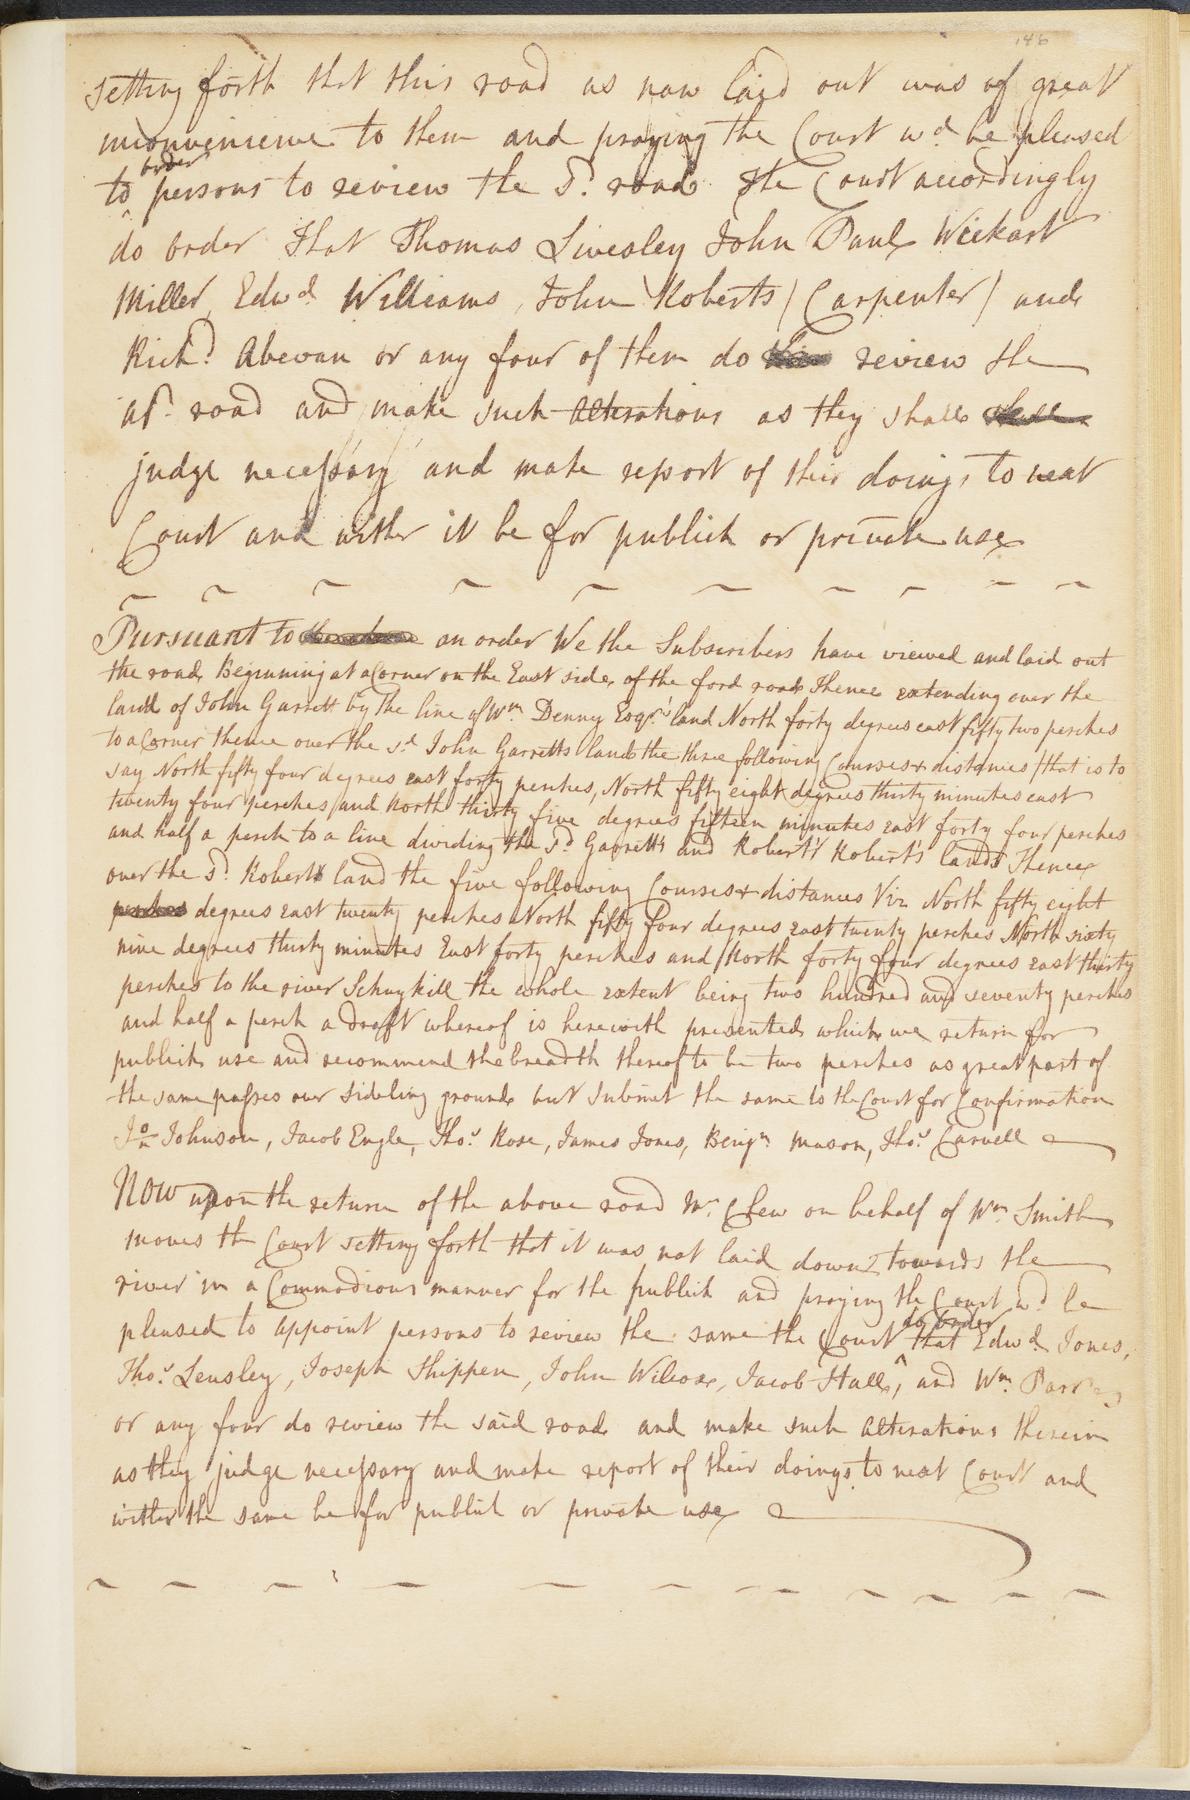 146
setting forth that this road as now laid out was of great
inconvenience to them and praying the Court wd. be pleased
order
to persons to review the Sd. road. the Court accordingly
do order That Thomas Livesley John Paul Wickart
Miller, Edwd. Williams, John Roberts (Carpenter) and
Richd. Abevan or any four of them do review the
afd. road and make such Alterations as they shall
judge necessary and make report of their doings to next
Court and wither it be for publick or private use
Pursuant to an order We the Subscribers have viewed and laid out
the road, Beginning at a Corner on the East side, of the ford road Thence extending over the
land of John Garrett by the line of Wm. Denny Esqrs. land North forty degrees east fifty two perches
to a Corner thence over the sd. John Garretts land the three following Courses & distances (that is to
say North fifty four degrees east forty perches, North fifty eight degrees thirty minutes east
twenty four perches and North thirty five degrees fifteen minutes east forty four perches
and half a perch to a line dividing the Sd. Garretts and Robert Robert's lands Thence
over the Sd. Roberts land the five following Courses & distances Viz. North fifty eight
degrees east twenty perches North fifty four degrees east twenty perches North sixty
nine degrees thirty minutes East forty perches and North forty four degrees east thirty
perches to the river Schuykill the whole extent being two hundred and seventy perches
and half a perch a Draft whereof is herewith presented which we return for
publick use and recommend the breadth thereof to be two perches as great part of
the same passes over sideling ground but submit the same to the Court for Confirmation
Jon Johnson, Jacob Engle, Thos. Rose, James Jones, Benjn. Mason, Thos. Carvell
Now upon the return of the above road Mr. Chew on behalf of Wm. Smith
moves the Court setting forth that it was not laid down towards the
river in a Commodious manner for the publick and praying the Court wd. be
do order
pleased to appoint persons to review the same the Court that Edwd. Jones,
Thos. Lensley, Joseph Shippen, John Wilcox, Jacob Hall, and Wm.
or any four do review the said road and make such Alterations therein
as they judge necessary and make report of their doings to next Court and
wither the same be for publick or private use